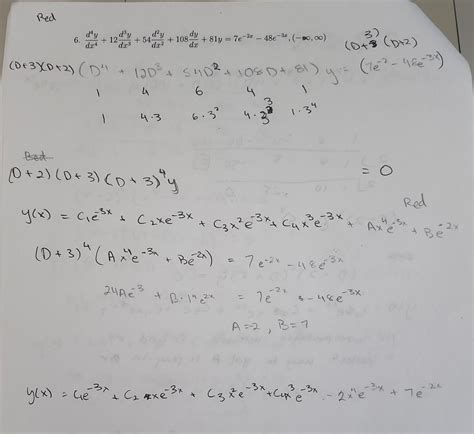 Red
6. d⁴y/dx⁴ + 12 d³y/dx³ + 54 d²y/dx² + 108 dy/dx + 81y = 7e^{-2x} − 48e^{-3x}, (−∞, ∞)
(D+3)(D+2)
(D+3)(D+2)(D⁴ + 12D³ + 54D² + 108D + 81) y = (7e^{-2} − 48e^{-3x})
1 4 6 4 1
1 4·3 6·3² 4·3³ 1·3⁴
(D+2)(D+3)(D+3)⁴y = 0
Red
y(x) = C₁e^{-3x} + C₂xe^{-3x} + C₃x²e^{-3x} + C₄x³e^{-3x} + Ax⁴e^{-3x} + Be^{-2x}
(D+3)⁴(Ax⁴e^{-3x} + Be^{-2x}) = 7e^{-2x} − 48e^{-3x}
24Ae^{-3} + B·1⁴e^{2x} = 7e^{-2x} − 48e^{-3x}
A=-2, B=7
y(x) = C₁e^{-3x} + C₂xe^{-3x} + C₃x²e^{-3x} + C₄x³e^{-3x} − 2x⁴e^{-3x} + 7e^{-2x}